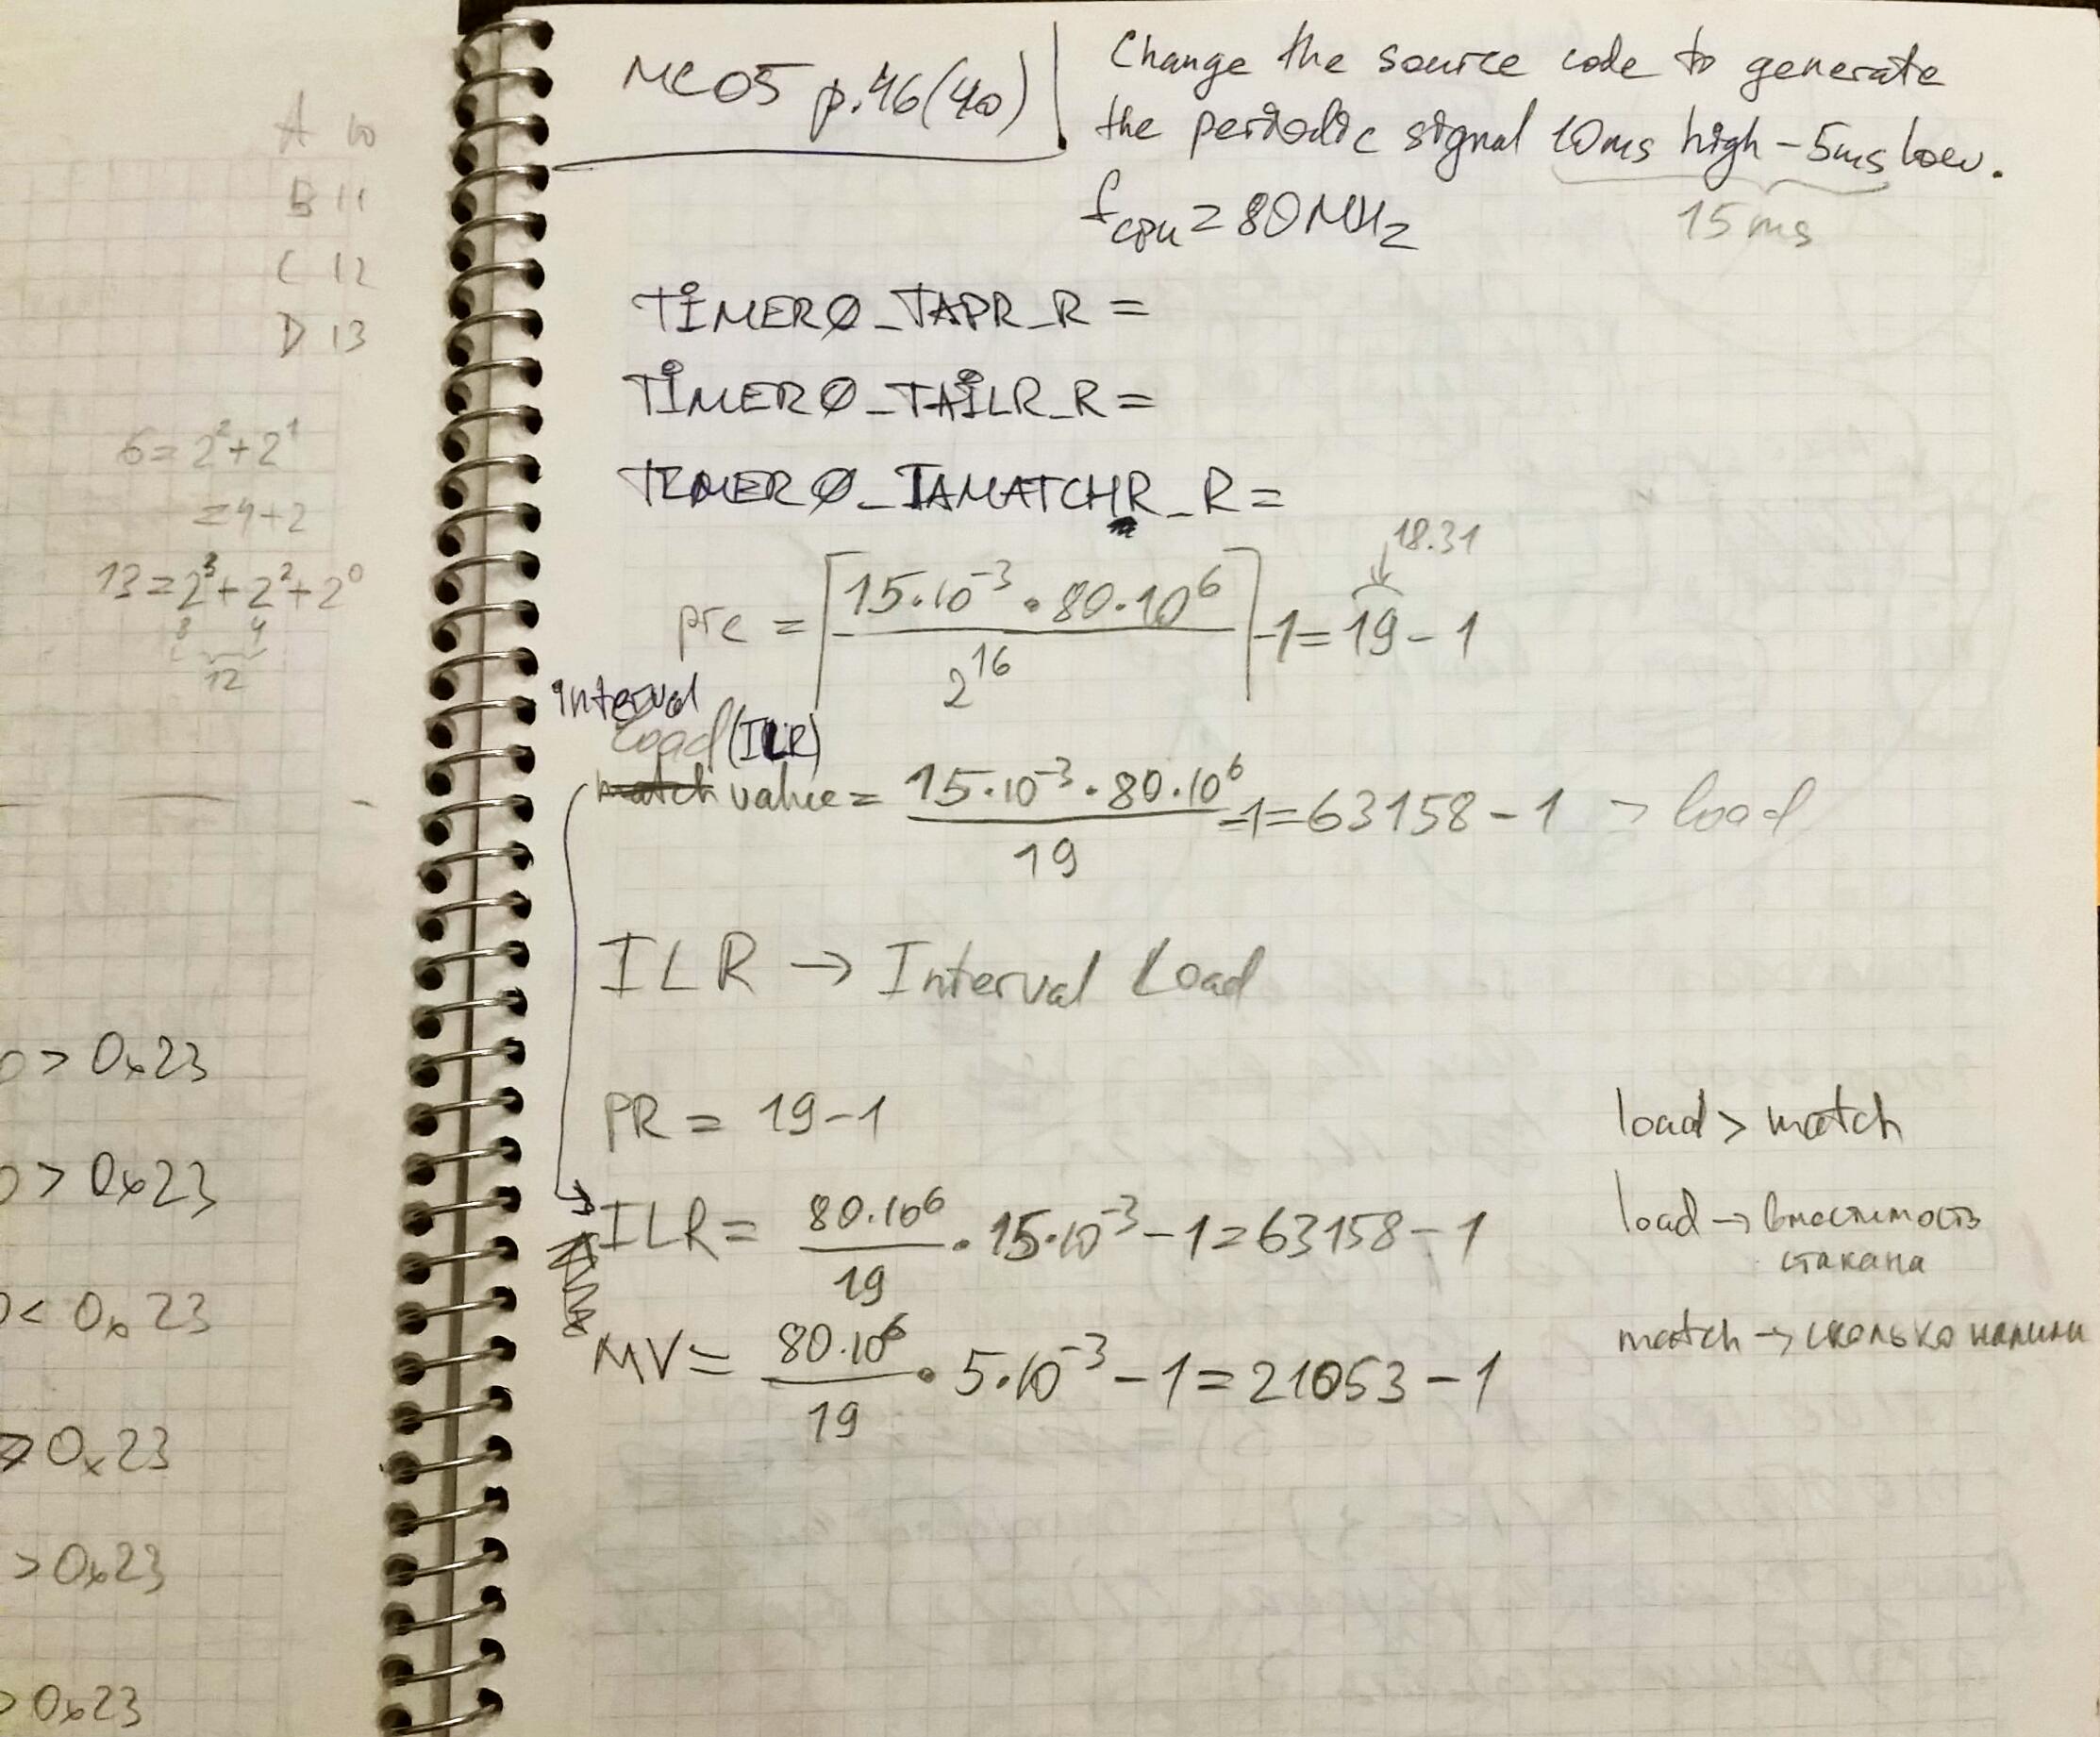 A 10
B 11
C 12
D 13
6 = 2² + 2¹
= 4 + 2
13 = 2³ + 2² + 2⁰
8 4
12
> 0x23
> 0x23
< 0x23
> 0x23
> 0x23
> 0x23
MC05 p.46(40)
Change the source code to generate
the periodic signal 10ms high – 5ms low.
15 ms
fcpu = 80 MHz
TIMER0_TAPR_R =
TIMER0_TAILR_R =
TIMER0_TAMATCHR_R =
18.31
pre = ⌈15·10⁻³ · 80·10⁶ / 2¹⁶⌉ - 1 = 19 - 1
interval
load (ILR)
match value = 15·10⁻³ · 80·10⁶ / 19 - 1 = 63158 - 1 > load
ILR → Interval Load
PR = 19 - 1
load > match
ILR = 80·10⁶ / 19 · 15·10⁻³ - 1 = 63158 - 1
load → вместимость
стакана
MV = 80·10⁶ / 19 · 5·10⁻³ - 1 = 21053 - 1
match → сколько налили